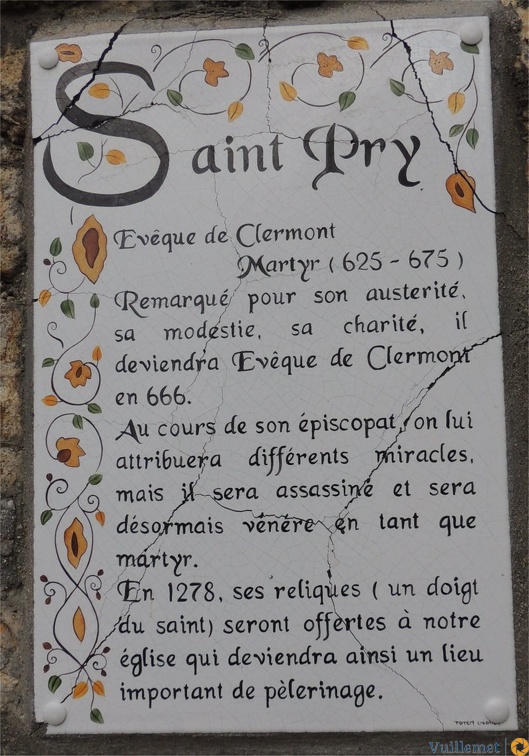 Saint Pry
Evêque de Clermont
Martyr ( 625 - 675 )
Remarqué pour son austerité,
sa modestie, sa charité, il
deviendra Evêque de Clermont
en 666.
Au cours de son épiscopat, on lui
attribuera différents miracles,
mais il sera assassiné et sera
désormais vénéré en tant que
martyr.
En 1278, ses reliques ( un doigt
du saint) seront offertes à notre
église qui deviendra ainsi un lieu
important de pèlerinage.
Vuillemet